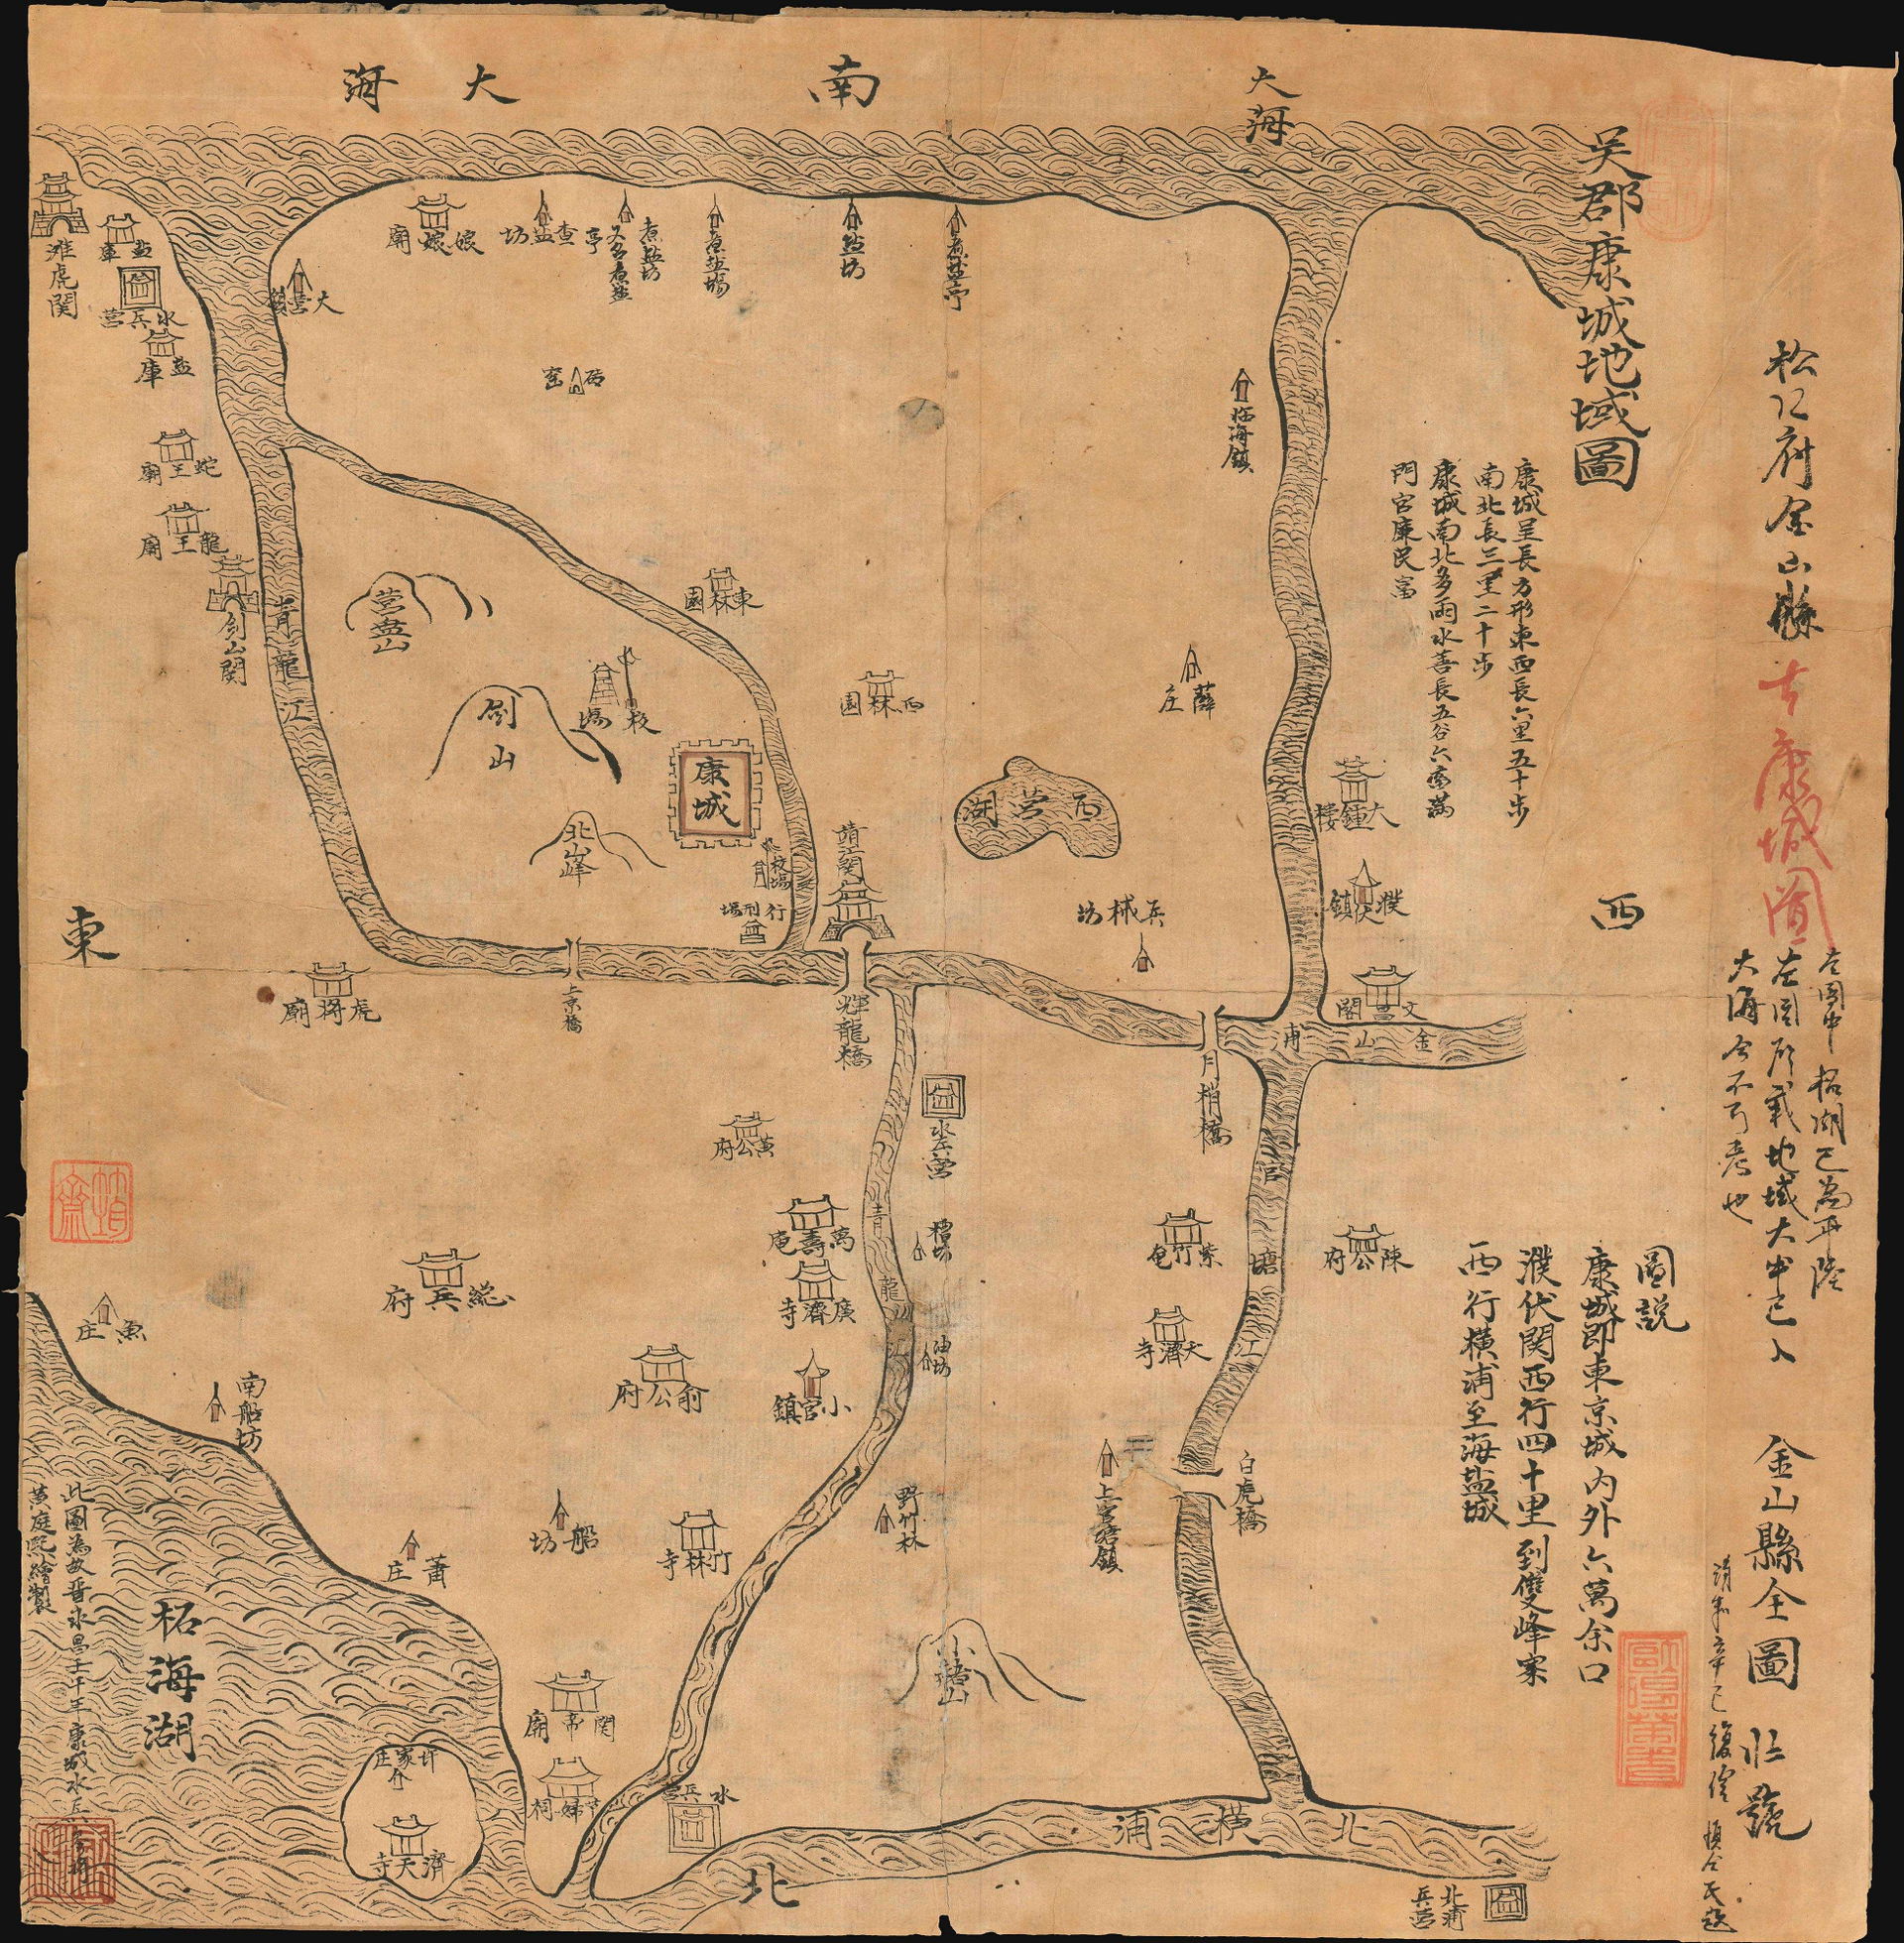 松江府金山縣
古康城圖
左圖中柘湖已為平陸
左圖所載地域大半已入
大海今不可考也
金山縣全圖 壯號
吳郡康城地域圖
康城呈長方形東西長六里五十步
南北長三里二十步
康城南北多雨水善長五谷六畜滿
門官廉民富
圖説
康城即東京城内外六萬余口
濮伏関西行四十里到雙峰寨
西行横浦至海盐城
南
大海
大海
西
東
北
滩虎関
盐庫
水兵营
盐庫
蛇王廟
龍王廟
剑山関
大营鎮
娘娘廟
查盐坊
煮盐坊
又名煮盐亭
煮盐場
盐坊
煮盐亭
砖窑
临海鎮
青龍江
营盘山
剑山
北峰
東林園
校場
康城
校場
行刑場
靖江関
西林園
西营湖
薛庄
兵械坊
大鍾楼
濮伏鎮
文昌閣
金山浦
月梢橋
上京橋
輝龍橋
虎將廟
黄公府
水兵营
萬壽庵
廣濟寺
糟坊
油坊
小官鎮
青龍江
総兵府
俞公府
魚庄
南船坊
船坊
蕭庄
竹林寺
野竹林
官塘江
紫竹庵
陳公府
天濟寺
白虎橋
上官塘鎮
小樟山
関帝廟
水兵营
北横浦
北浦兵营
柘海湖
濟天寺
此圖為故晋永昌壬午年康城水兵
黄庭熙繪製